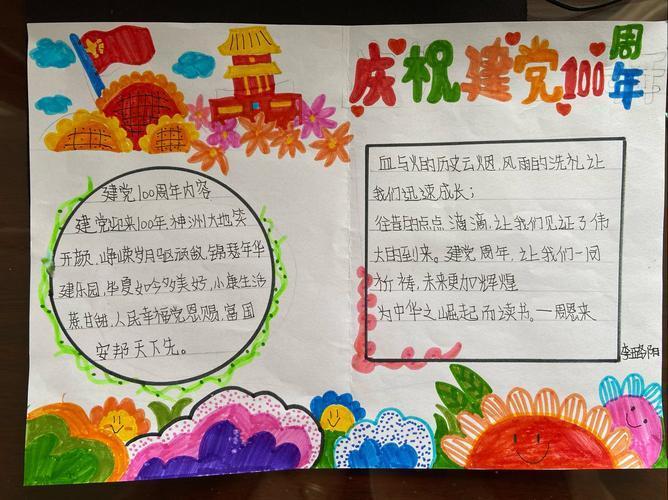 庆祝建党100周年
建党100周年内容
建党迎来100年,神州大地笑
开颜,峥嵘岁月呕颂歌,锦瑟年华
建乐园,华夏如今多美好,小康生活
蔗甘甜,人民幸福党恩赐,富国
安邦天下先。
血与火的历史云烟,风雨的洗礼,让
我们迅速成长;
往昔的点点滴滴,让我们见证了伟
大的到来。建党周年,让我们一同
祈祷,未来更加辉煌
为中华之崛起而读书。一周恩来